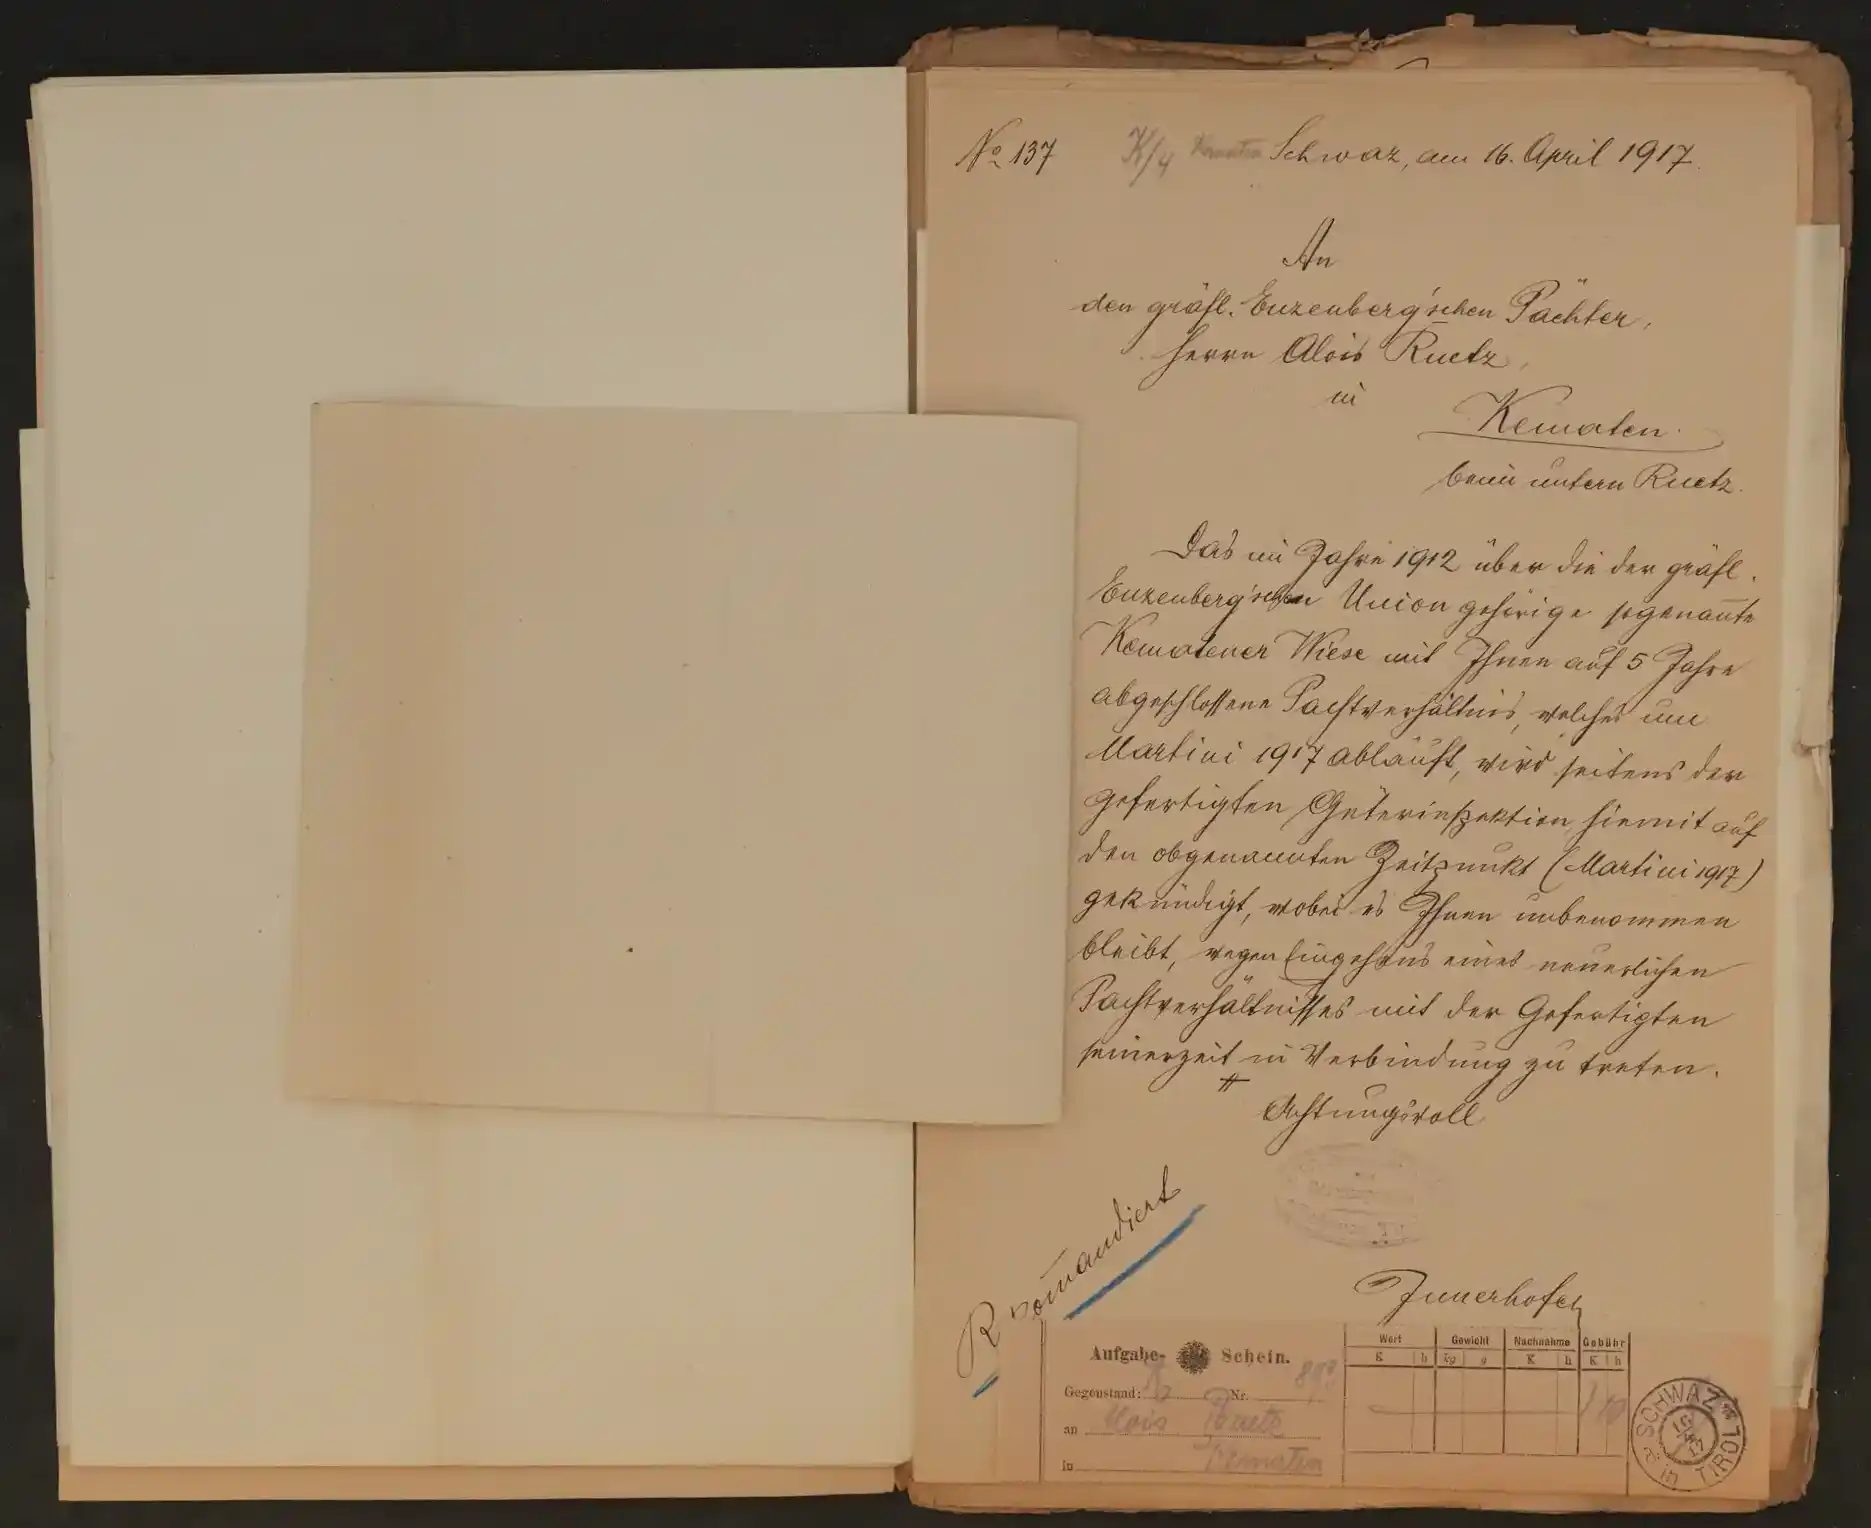 No 137 K/4 Kematen Schwaz, am 16. April 1917.
An
den gräfl. Enzenberg'schen Pächter,
Herrn Alois Ruetz,
in
Kematen.
beim untern Ruetz.
Das im Jahre 1912 über die der gräfl.
Enzenberg'schen Union gehörige sogenannte
Kematener Wiese mit Ihnen auf 5 Jahre
abgeschlossene Pachtverhältnis, welches um
Martini 1917 abläuft, wird seitens der
gefertigten Güterinspektion hiemit auf
den obgenannten Zeitpunkt (Martini 1917)
gekündigt, wobei es Ihnen unbenommen
bleibt, wegen Eingehens eines neuerlichen
Pachtverhältnisses mit der Gefertigten
seinerzeit in Verbindung zu treten.
Achtungsvoll
Innerhofer
Rekomandiert
Aufgabe-Schein.
Wert Gewicht Nachnahme Gebühr
K h kg g K h K h
Gegenstand: Nr.
an Alois Ruetz
in Kematen
SCHWAZ in TIROL
16 17